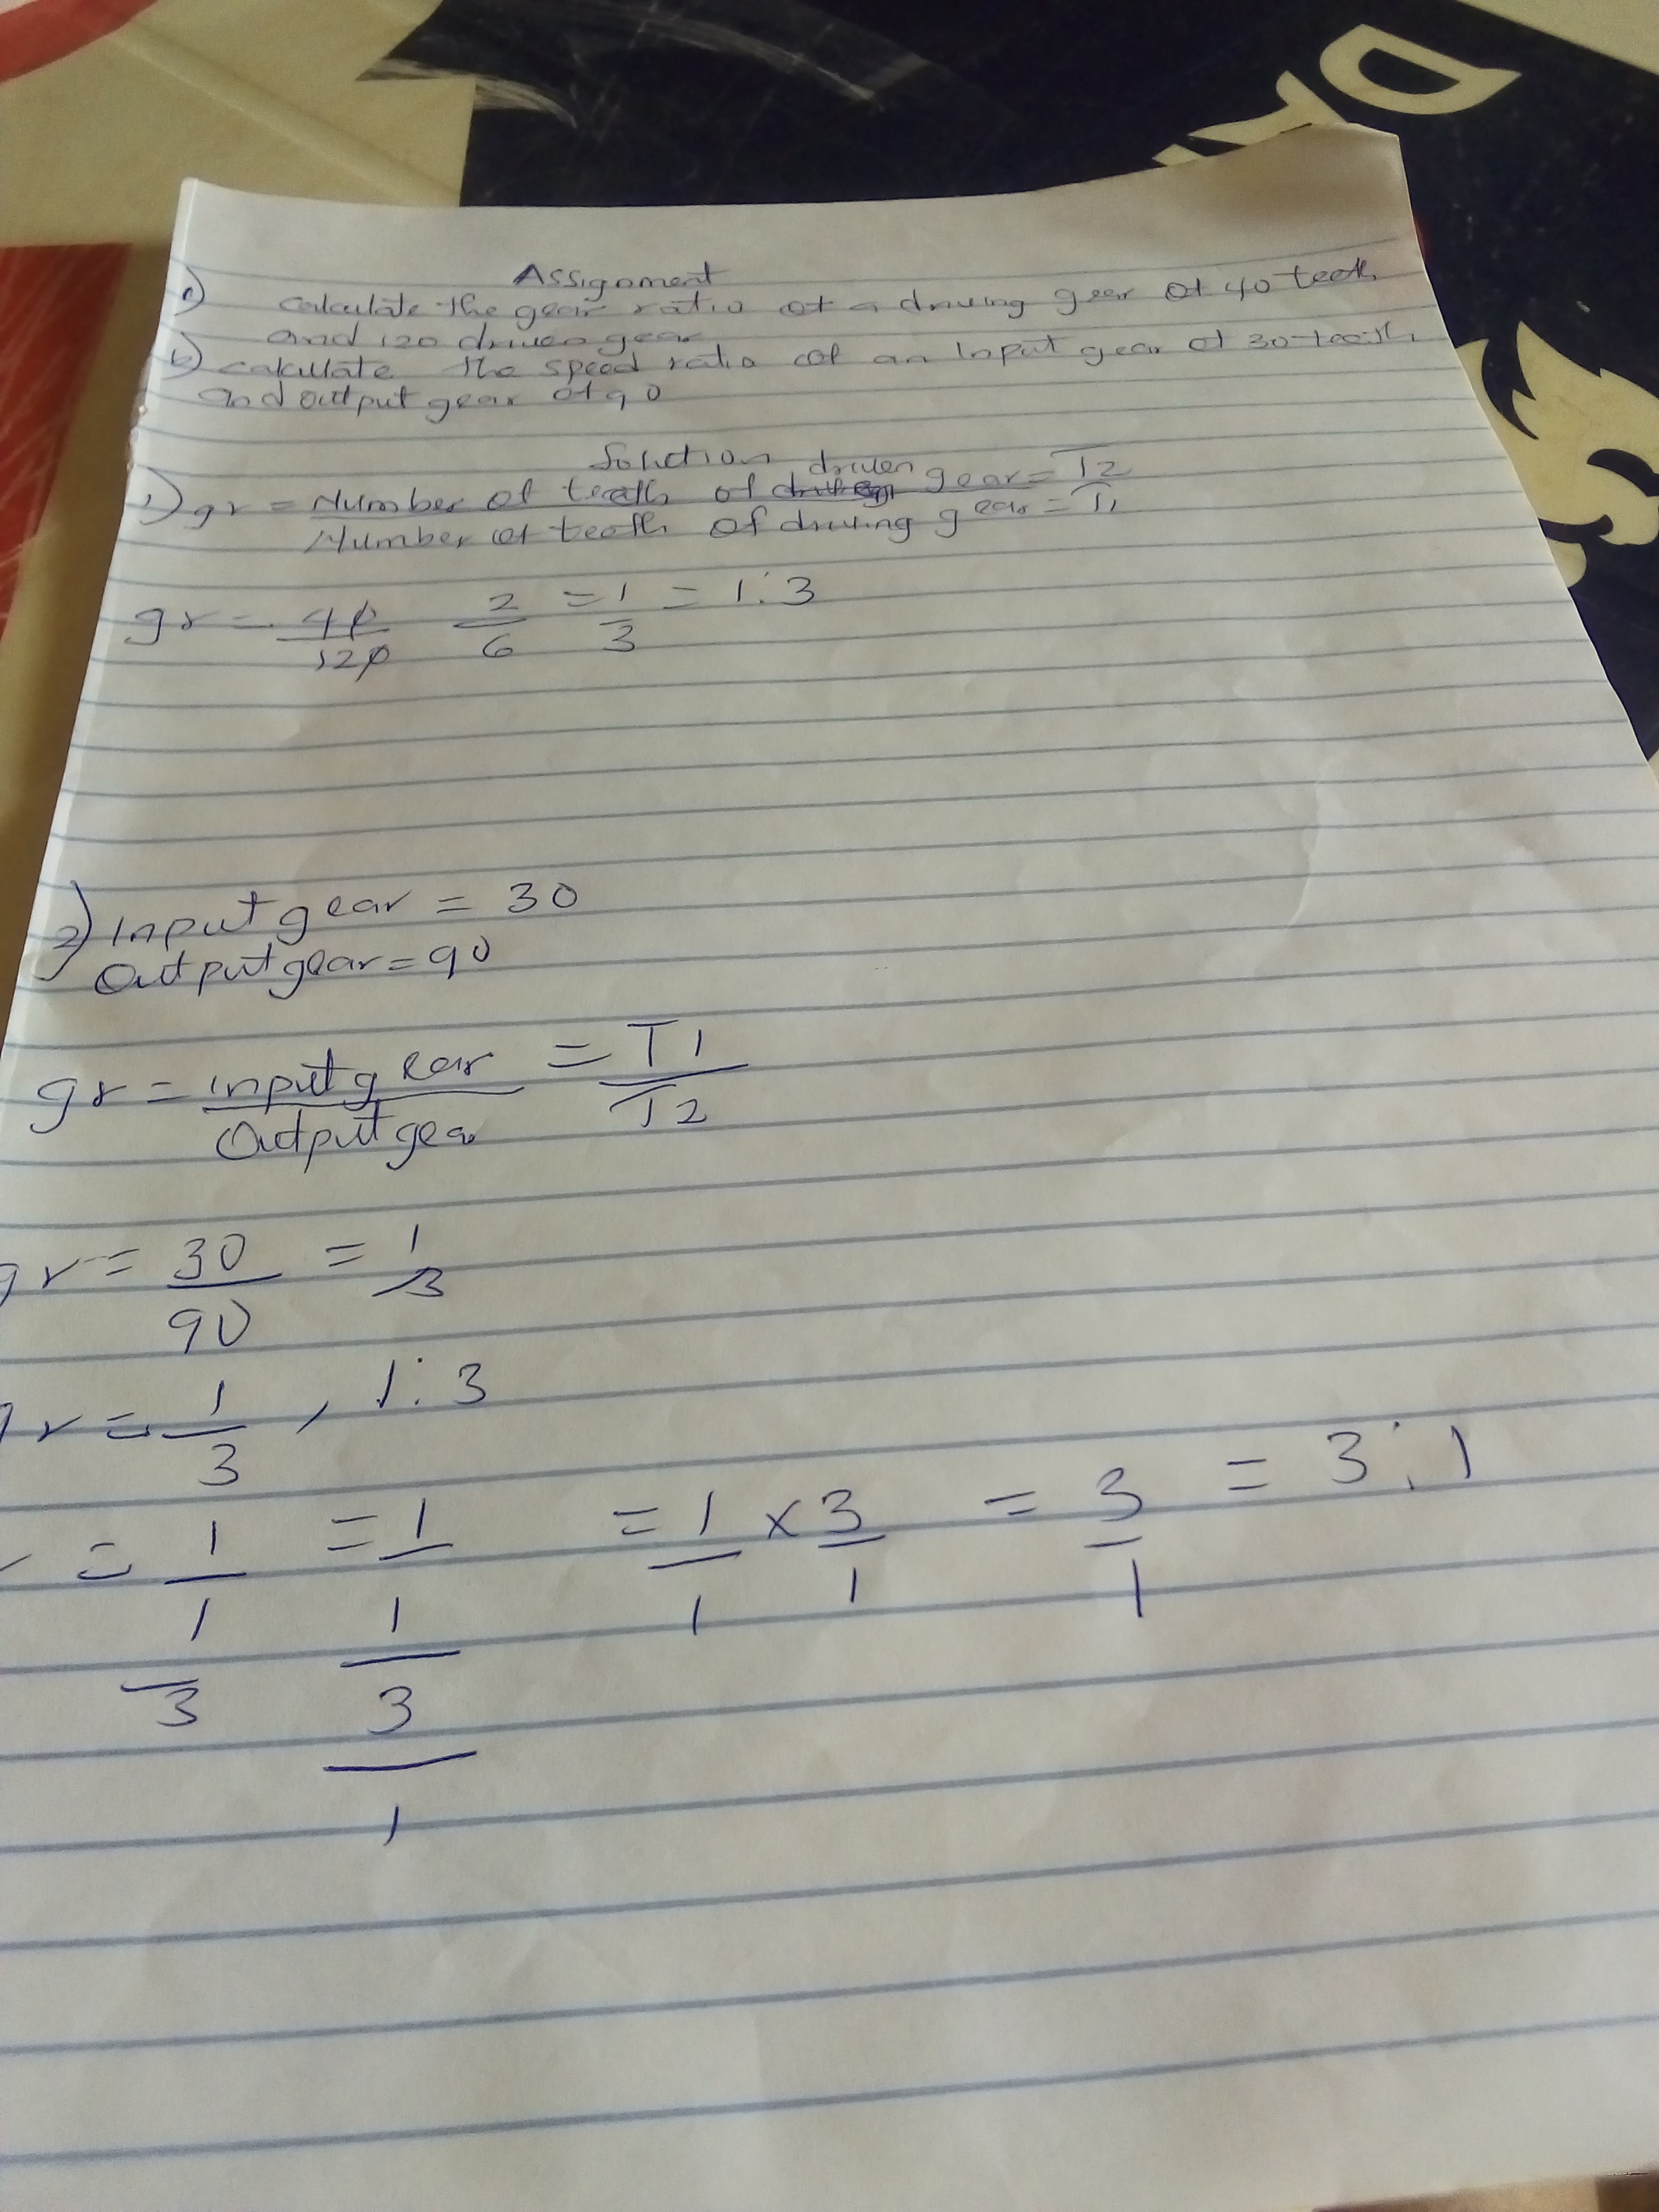 Assignment
a) calculate the gear ratio of a driving gear of 40 teeth
and 120 driven gear
b) calculate the speed ratio of an Input gear of 30 teeth
and output gear of 90
Solution
driven
1) gr = Number of teeth of gear = T2
Number of teeth of driving gear = T1
gr = 40/120 2/6 = 1/3 = 1:3
2) Input gear = 30
Output gear = 90
gr = input gear/Output gear = T1/T2
gr = 30/90 = 1/3
gr = 1/3, 1:3
= 1/1/3 = 1/1/3/1 = 1/1 x 3/1 = 3/1 = 3:1